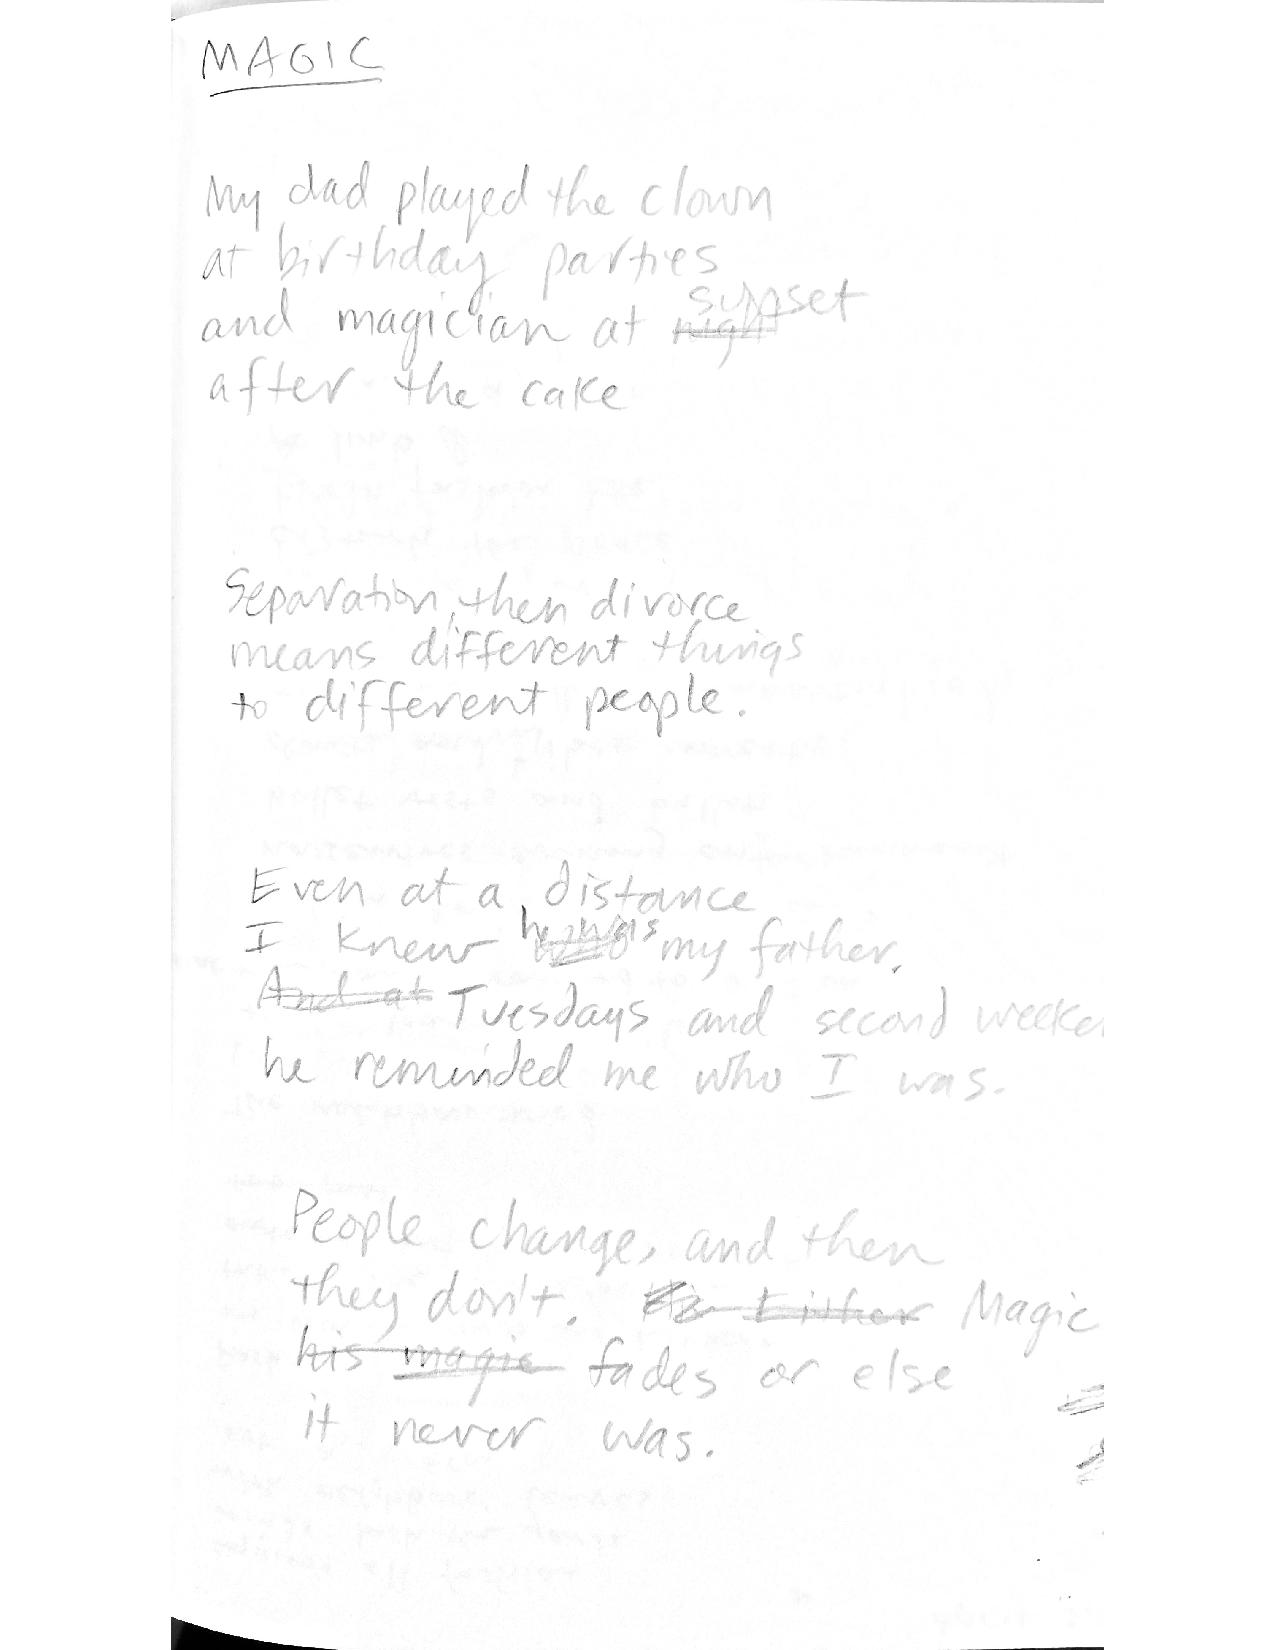 MAGIC
My dad played the clown
at birthday parties
and magician at sunset
after the cake
Separation, then divorce
means different things
to different people.
Even at a distance
I knew he was my father.
And at Tuesdays and second weeke
he reminded me who I was.
People change, and then
they don't. Magic
his magic fades or else
it never was.